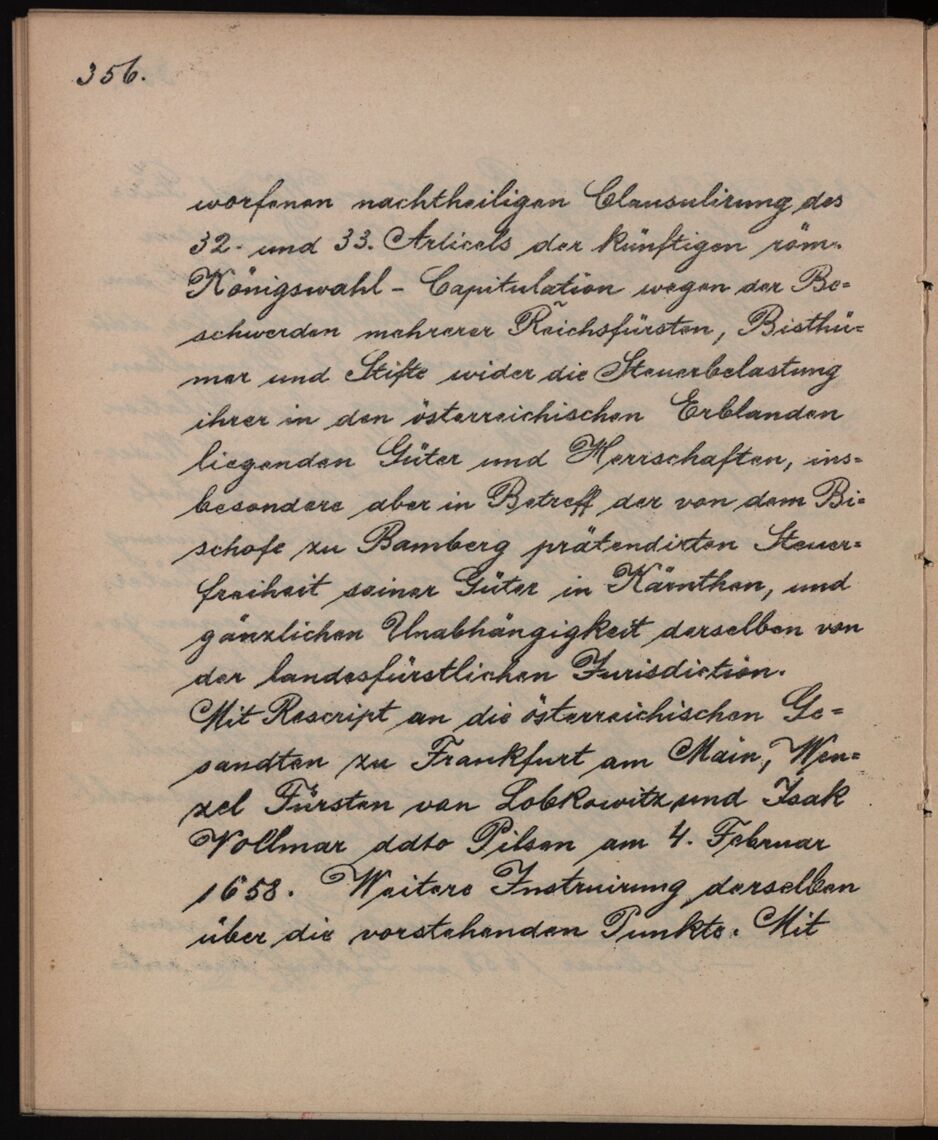 356.
worfenen nachtheiligen Clausulirung des
32. und 33. Articels der künftigen röm.
Königswahl - Capitulation wegen der Be=
schwerden mehrerer Reichsfürsten, Bisthü=
mer und Stifte wider die Steuerbelastung
ihrer in den österreichischen Erblanden
liegenden Güter und Herrschaften, ins=
besondere aber in Betreff der von dem Bi=
schofe zu Bamberg prätendirten Steuer=
freiheit seiner Güter in Kärnthen, und
gänzlichen Unabhängigkeit derselben von
der landesfürstlichen Jurisdiction.
Mit Rescript an die österreichischen Ge=
sandten zu Frankfurt am Main, Wen=
zel Fürsten von Lobkowitz und Isak
Vollmar ddto Pilsen am 4. Februar
1658. Weitere Instruirung derselben
über die vorstehenden Punkte. Mit